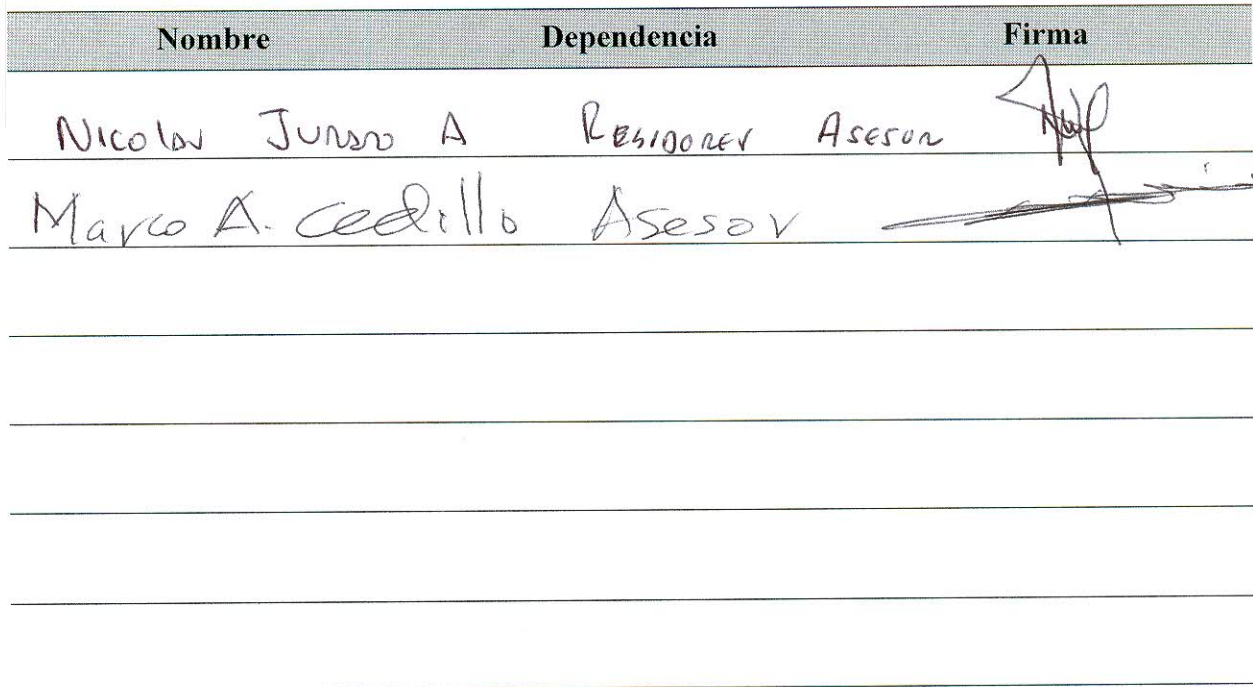 Nombre Dependencia Firma
Nicolas Jurado A Regidores Asesor
Marco A. Cedillo Asesor